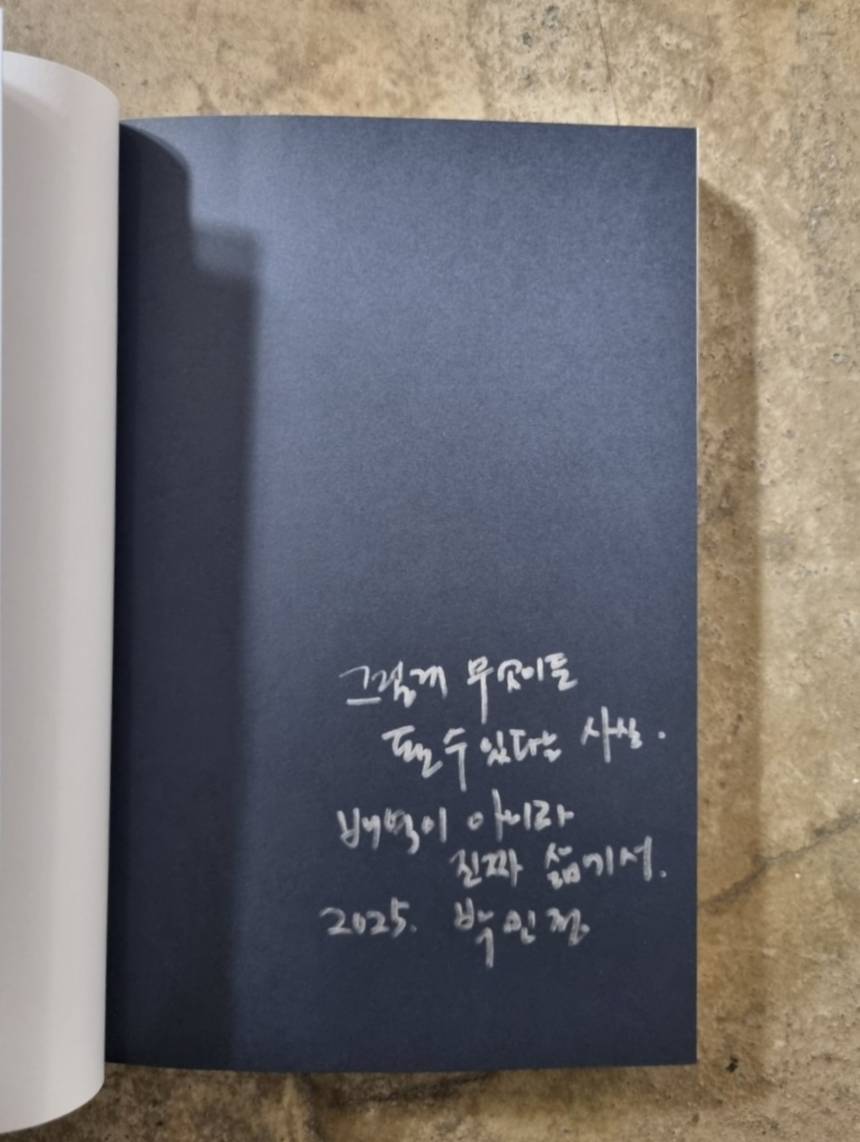 그렇게 무엇이든
될 수 있다는 사실.
배역이 아니라
진짜 삶에서.
2025. 박인정